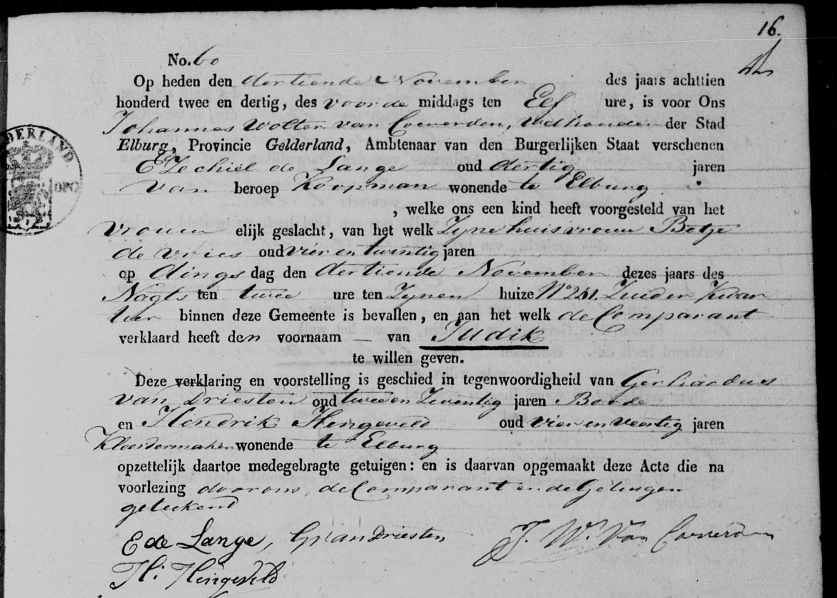 16.
No. 60
Op heden den dertiende November des jaars achttien
honderd twee en dertig, des voorde middags ten Elf ure, is voor Ons
Johannes Wolter van Coeverden, Wethouder der Stad
Elburg, Provincie Gelderland, Ambtenaar van den Burgerlijken Staat verschenen
EZechiël de Lange oud dertig jaren
van beroep Koopman wonende te Elburg
, welke ons een kind heeft voorgesteld van het
vrouw elijk geslacht, van het welk Zyne huisvrouw Betje
de Vries oud vier en twintig jaren
op dings dag den dertiende November dezes jaars des
Nagts ten twee ure ten Zynen huize No 251. Zuider Kwar
tier binnen deze Gemeente is bevallen, en aan het welk de Comparant
verklaard heeft den voornaam — van Judik
te willen geven.
Deze verklaring en voorstelling is geschied in tegenwoordigheid van Gerhardus
van Driesten oud twee en Zeventig jaren Bode
en Hendrik Hengeveld oud vier en veertig jaren
Kleedermaker wonende te Elburg
opzettelijk daartoe medegebragte getuigen: en is daarvan opgemaakt deze Acte die na
voorlezing door ons, de Comparant en de Getuigen
geteekend
E de Lange, G van Driesten J. W. Van Coeverden
H. Hengeveld
DERLAND